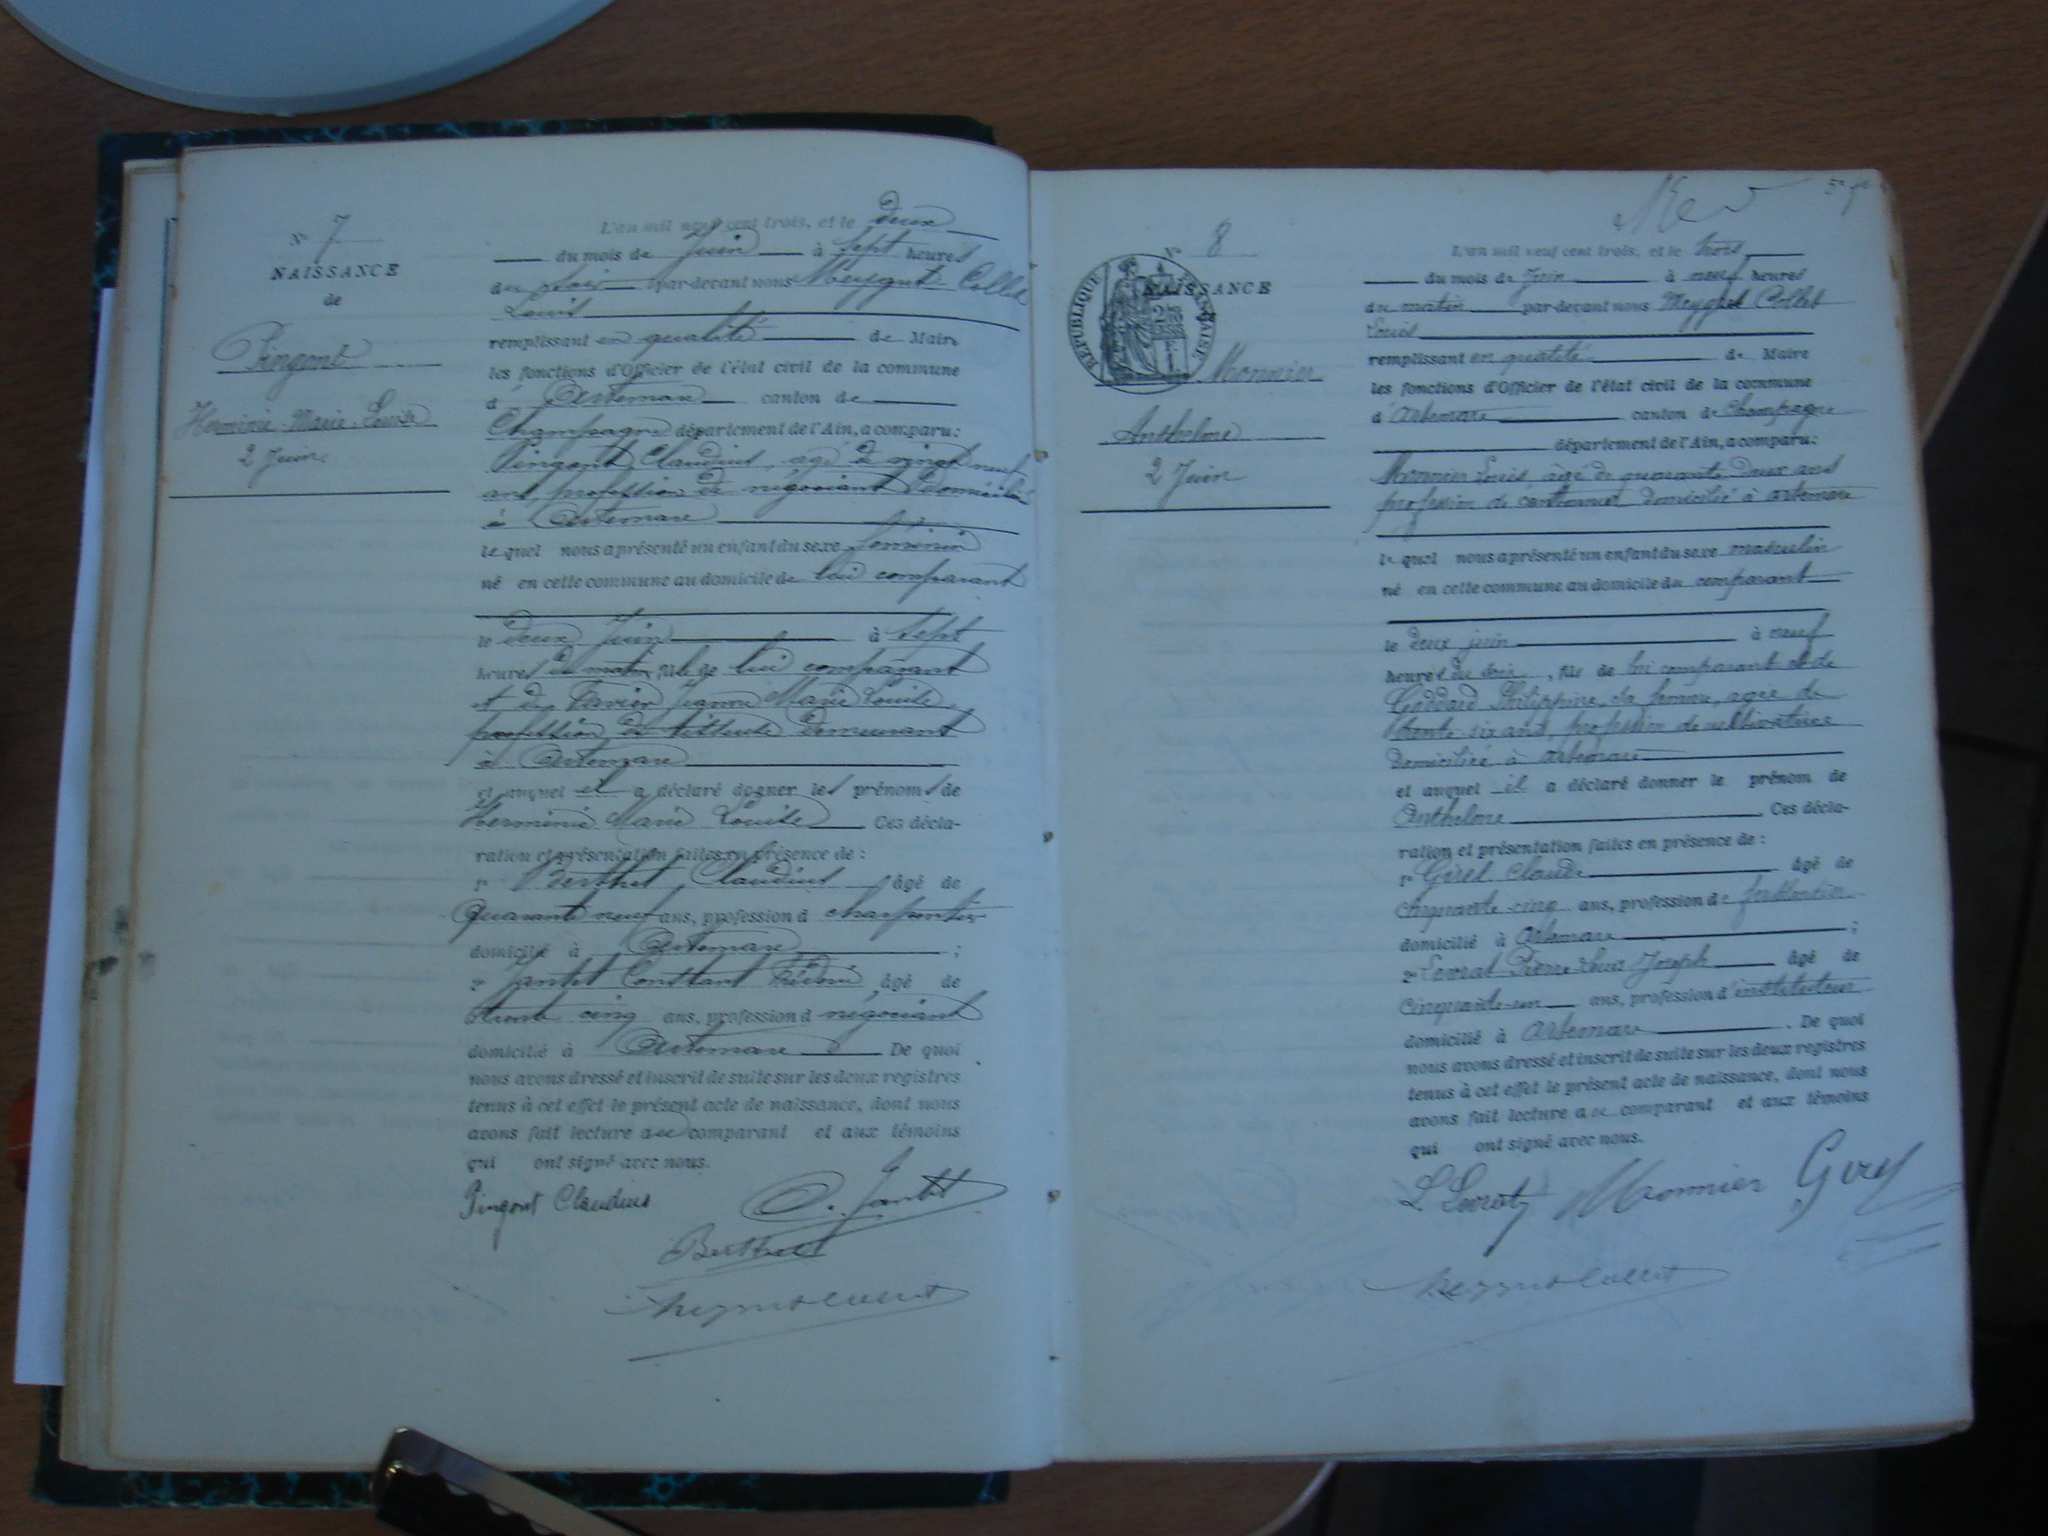 N° 7
NAISSANCE
de
Pingont
Herminie Marie Louise
2 Juin
L'an mil neuf cent trois, et le deux
du mois de Juin à sept heures
du soir par-devant nous Meygret Collet
Louis
remplissant en qualité de Maire
les fonctions d'Officier de l'état civil de la commune
d'Artemare canton de
Champagne département de l'Ain, a comparu:
Pingont Claudius, âgé de vingt neuf
ans, profession de négociant domicilié
à Artemare
le quel nous a présenté un enfant du sexe féminin
né en cette commune au domicile de lui comparant
le deux Juin à sept
heures du matin, fille de lui comparant
et de Tavier Jeanne Marie Louise,
profession de demeurant
à Artemare
et auquel il a déclaré donner les prénoms de
Herminie Marie Louise Ces décla-
ration et présentation faites en présence de :
1° Berthet Claudius âgé de
Quarante neuf ans, profession d charpentier
domicilié à Artemare ;
2° Jantet Constant âgé de
trente cinq ans, profession d négociant
domicilié à Artemare De quoi
nous avons dressé et inscrit de suite sur les deux registres
tenus à cet effet le présent acte de naissance, dont nous
avons fait lecture au comparant et aux témoins
qui ont signé avec nous.
Pingont Claudius C. Jantet
Berthet
Meygret Collet
N° 8
NAISSANCE
RÉPUBLIQUE FRANÇAISE
Monnier
Anthelme
2 Juin
L'an mil neuf cent trois, et le trois
du mois de Juin à neuf heures
du matin par-devant nous Meygret Collet
Louis
remplissant en qualité de Maire
les fonctions d'Officier de l'état civil de la commune
d'Artemare canton de Champagne
département de l'Ain, a comparu:
Monnier Louis, âgé de quarante deux ans
profession de cantonnier domicilié à Artemare
le quel nous a présenté un enfant du sexe masculin
né en cette commune au domicile du comparant
le deux juin à neuf
heures du soir, fils de lui comparant et de
Goddard Philippine, sa femme, agée de
trente six ans, profession de cultivatrice
domiciliée à Artemare
et auquel il a déclaré donner le prénom de
Anthelme. Ces décla-
ration et présentation faites en présence de :
1° Girel Claude âgé de
Cinquante-cinq ans, profession de ferblantier
domicilié à Artemare ;
2° Levrat Pierre Louis Joseph âgé de
Cinquante-un ans, profession d'instituteur
domicilié à Artemare. De quoi
nous avons dressé et inscrit de suite sur les deux registres
tenus à cet effet le présent acte de naissance, dont nous
avons fait lecture au comparant et aux témoins
qui ont signé avec nous.
L Levrat Monnier Girel
Meygret Collet